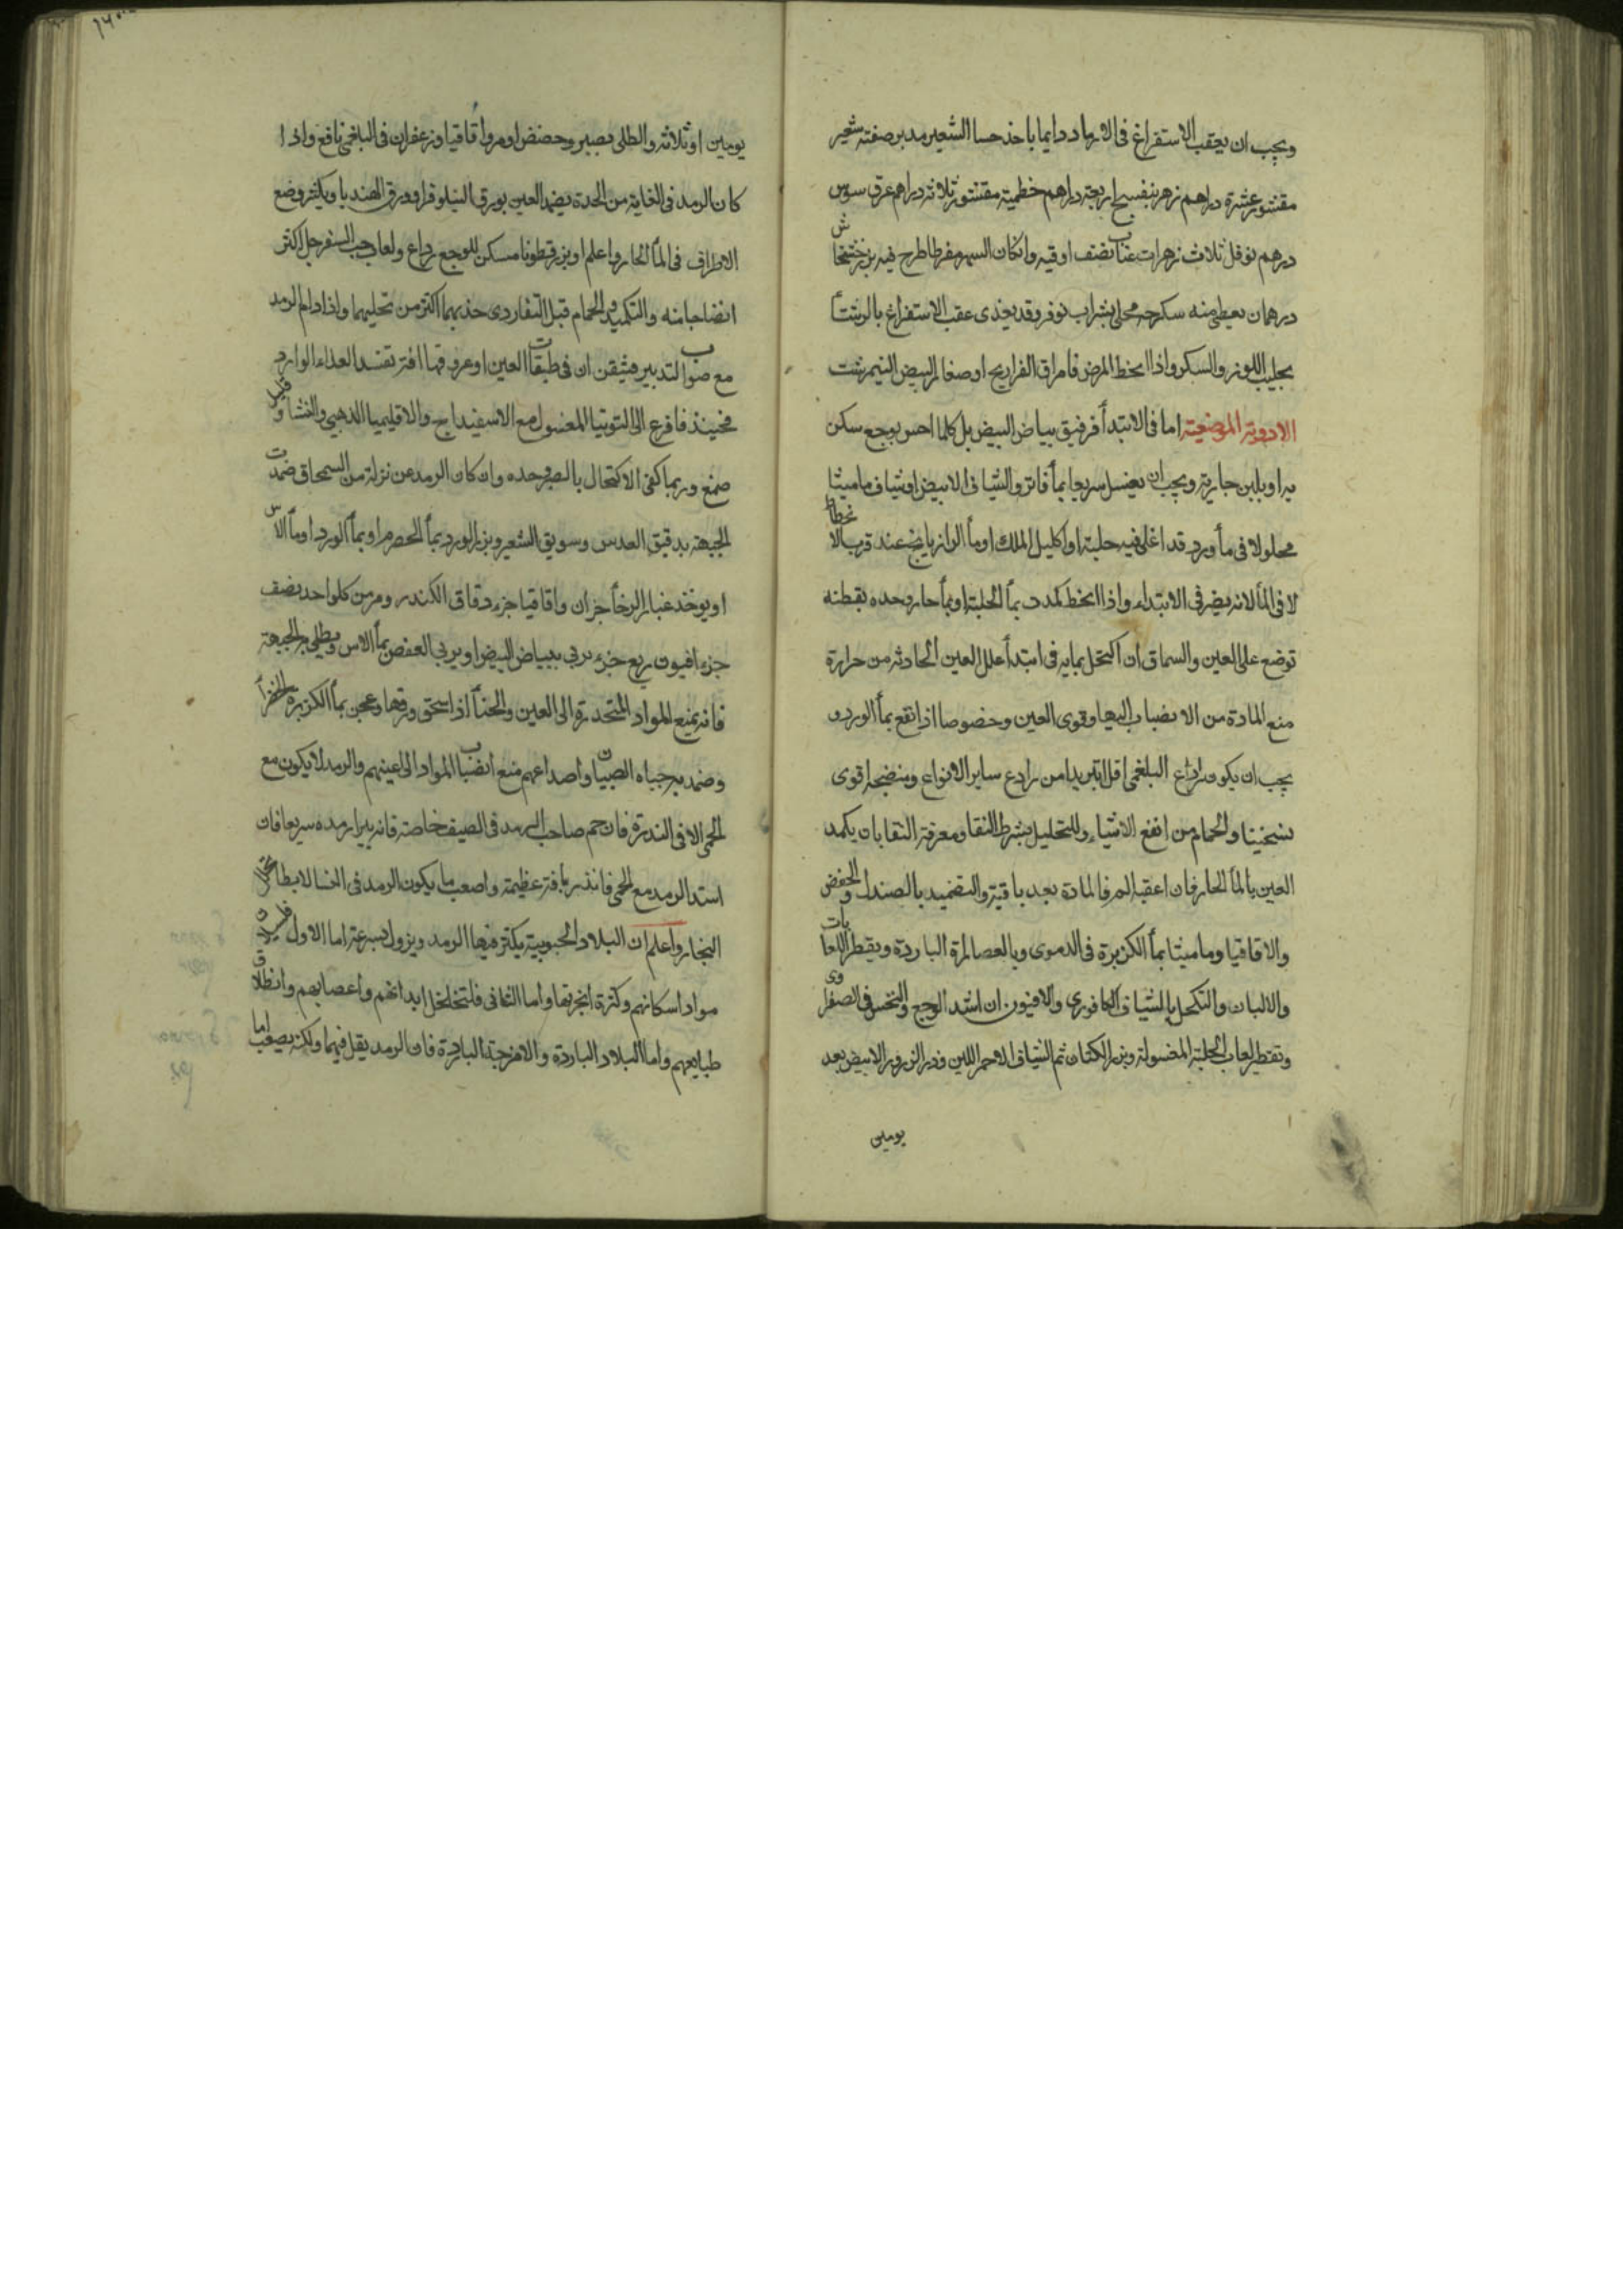 ويجب ان يعقب الاستفراغ فى الارماد دايما باخذ حسا الشعير مدبر صفته شعير
مقشور عشرة دراهم زهر بنفسج اربعة دراهم خطمية مقشور ثلاثة دراهم عرق سوس
درهم نوفل ثلاث زهرات عناب نصف اوقيه وان كان السهر مفرطا طرح فيه بزر خشخاش
درهمان يعطى منه سكرجه محلى بشراب نوفر وقد يغذى عقب الاستفراغ بالرشتا
بحليب اللوز والسكر واذا انحط المرض فامراق الفراريج او صفار البيض النيمرشت
الادوية الموضعية اما فى الابتدأ فرقيق بياض البيض بل كلما احس بوجع سكن
به او بلبن جارية ويجب ان يغسل سريعا بمأ فاتر والشياف الابيض او شياف ماميثا
محلولا فى مأ ورد قد اغلى فيه حلبة او اكليل الملك او مأ الرازيانج عند قرب الانحطاط
لا فى المأ لانه يضر فى الابتداء واذا انحط كمدت بمأ الحلبة او بمأ حار وحده بقطنه
توضع على العين والسماق ان اكتحل بمايه فى ابتدأ علل العين الحادثه من حرارة
منع المادة من الانصباب اليها وقوى العين وخصوصا اذا نقع بمأ الورد و
يجب ان يكون رادع البلغمى اقل تبريدا من رادع ساير الانواع ومنضجه اقوى
تسخينا والحمام من انفع الاشياء وللتحليل بشرط النقا ومعرفة النقا بان يكمد
العين بالمأ الحار فان اعقبه الم فالمادة بعد باقية والتضميد بالصندل والحضض
والاقاقيا وماميثا بمأ الكزبرة فى الدموى وبالعصارة الباردة ويقطر اللعابات
والالبان والتكحل بالشياف الكافورى والافيون ان اشتد الوجع والنخس فى الصفراوى
وتقطير لعاب الحلبة المغسولة وبزر الكتان ثم الشياف الاحمر اللين وذر الذرور الابيض بعد
يومين
يومين او ثلاثه والطلى بصبر وحضض او مر واقاقيا وزعفران فى البلغمى نافع واذا
كان الرمد فى الغاية من الحدة يضمد العين بورق النيلوفر او ورق الهندبا ويكثر وضع
الاطراف فى المأ الحار واعلم ان بزر قطونا مسكن للوجع رادع ولعاب حب السفرجل اكثر
انضاجا منه والتكميد والحمام قبل النقا ردى جذبهما اكثر من تحليهما واذا دام الرمد
مع صواب التدبير فتيقن ان فى طبقات العين او عروقها افة تفسد الغذاء الوارد
فحينئذ فافزع الى التوتيا المغسول مع الاسفيداج والاقليميا الذهبى والنشا وقليل
صمغ وربما كفى الاكتحال بالصبر وحده وان كان الرمد عن نزلة من السمحاق ضمدت
الجبهة بدقيق العدس وسويق الشعير وبزر الورد بمأ الحصرم او بمأ الورد او مأ الاس
او يوخذ غبار الرخأ جزان واقاقيا جزء دقاق الكندر ومر من كل واحد نصف
جزء افيون ربع جزء يربى ببياض البيض او يربى العفص بمأ الاس ويطلى به الجبهة
فانه يمنع المواد المتحدرة الى العين والحنأ اذا سحق ورقها وعجن بمأ الكزبرة الخضرأ
وضمد به جباه الصبيان واصداغهم منع انصباب المواد الى اعينهم والرمد لا يكون مع
الحمى الا فى الندرة فان حم صاحب الرمد فى الصيف خاصة فانه يبرا رمده سريعا فان
اشتد الرمد مع الحمى فانذر بآفة عظيمة واصعب ما يكون الرمد فى الشتا لابطا تحلل
البخار واعلم ان البلاد الجنوبية يكثر فيها الرمد ويزول بسرعة اما الاول فلسيلان
مواد اسكانهم وكثرة ابخرتها واما الثانى فلتخلخل ابدانهم واعصابهم وانطلاق
طبايعهم واما البلاد الباردة والامزجة الباردة فان الرمد يقل فيهما ولكنه يصعب اما